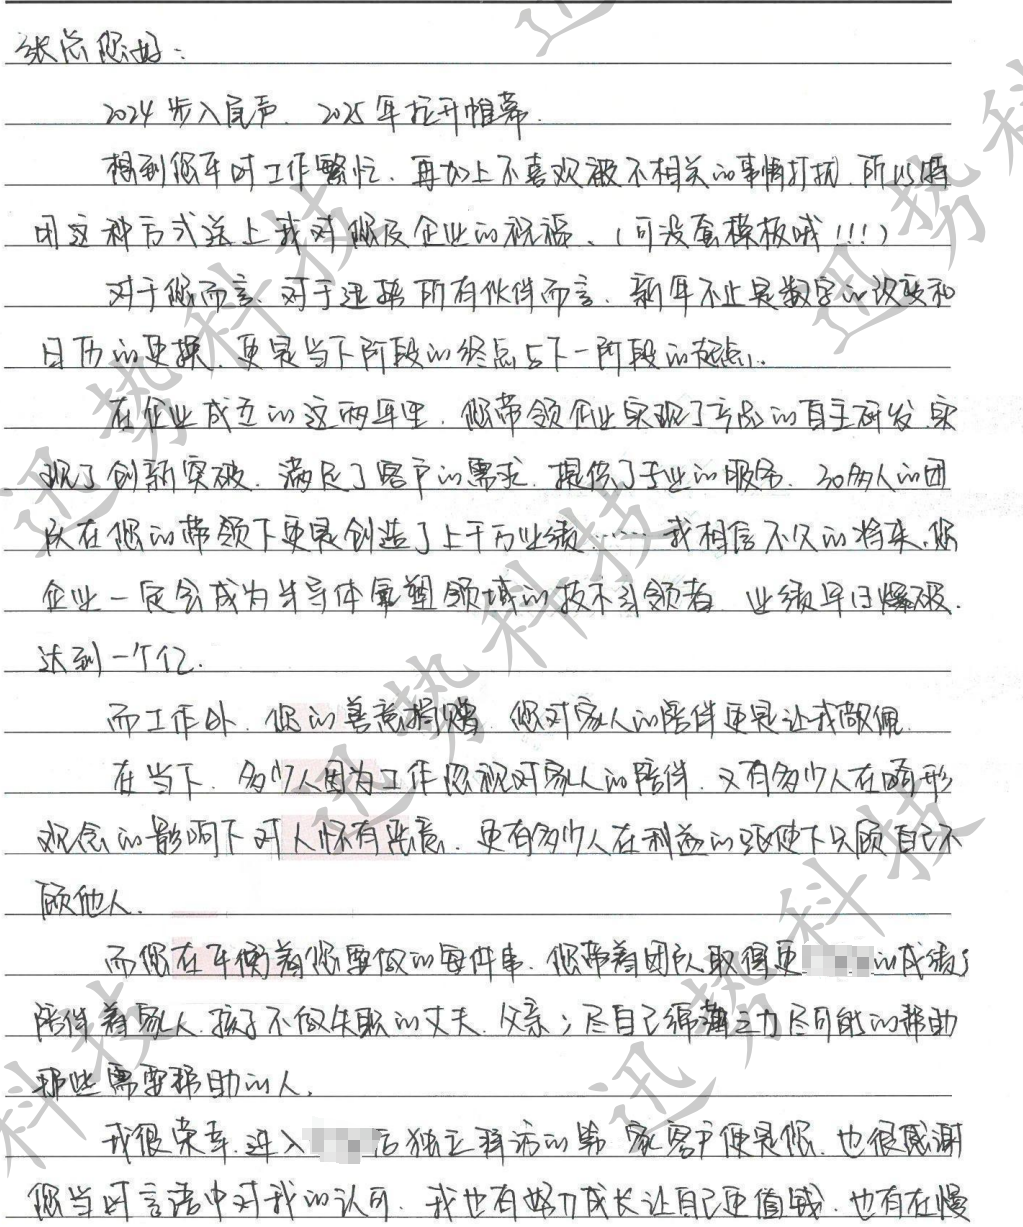 张总您好：
2024步入尾声、2025年拉开帷幕.
想到您平时工作繁忙、再加上不喜欢被不相关的事情打扰、所以
用这种方式送上我对您及企业的祝福、（可没套模板哦！！！）
对于您而言、对于迅势所有伙伴而言、新年不止是数字的改变和
日历的更换、更是当下阶段的终点与下一阶段的起点.
在企业成立的这两年里、您带领企业实现了产品的自主研发、实
现了创新突破、满足了客户的需求、提供了专业的服务、30多人的团
队在您的带领下更是创造了上千万业绩……我相信不久的将来、您
企业一定会成为半导体氟塑领域的技术引领者、业绩早日爆破、
达到一个亿.
而工作外、您的善意捐赠、您对家人的陪伴更是让我敬佩.
在当下、多少人因为工作忽视对家人的陪伴、又有多少人在畸形
观念的影响下对人怀有恶意、更有多少人在利益的驱使下只顾自己不
顾他人.
而您在平衡着您要做的每件事、您带着团队取得更的成绩；
陪伴着家人、孩子不做失职的丈夫、父亲；尽自己绵薄之力尽可能的帮助
那些需要帮助的人.
我很荣幸、进入后独立拜访的第家客户便是您、也很感谢
您当时言语中对我的认可、我也有努力成长让自己更值钱、也有在慢
迅势科技
迅势科技
迅势科技
迅势科技
迅势科技